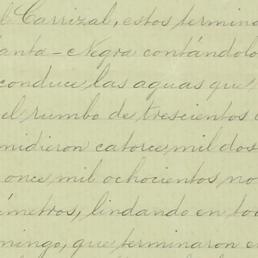 l Carrizal, estos termina
anta-Negra contándolo
conduce las aguas que
el rumbo de trescientos
midieron catorce mil dos
once mil ochocientos no
ímetros, lindando en to
mingo, que terminaron e